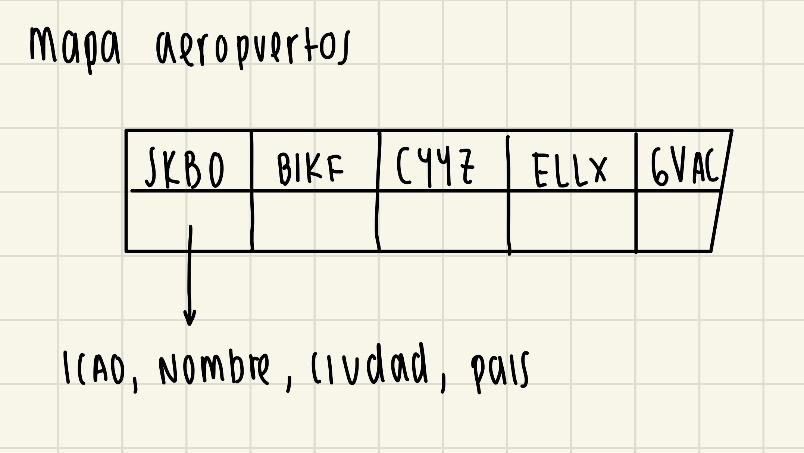 Mapa aeropuertos
SKBO BIKF CYYZ ELLX GVAC
ICAO, Nombre, Ciudad, pais